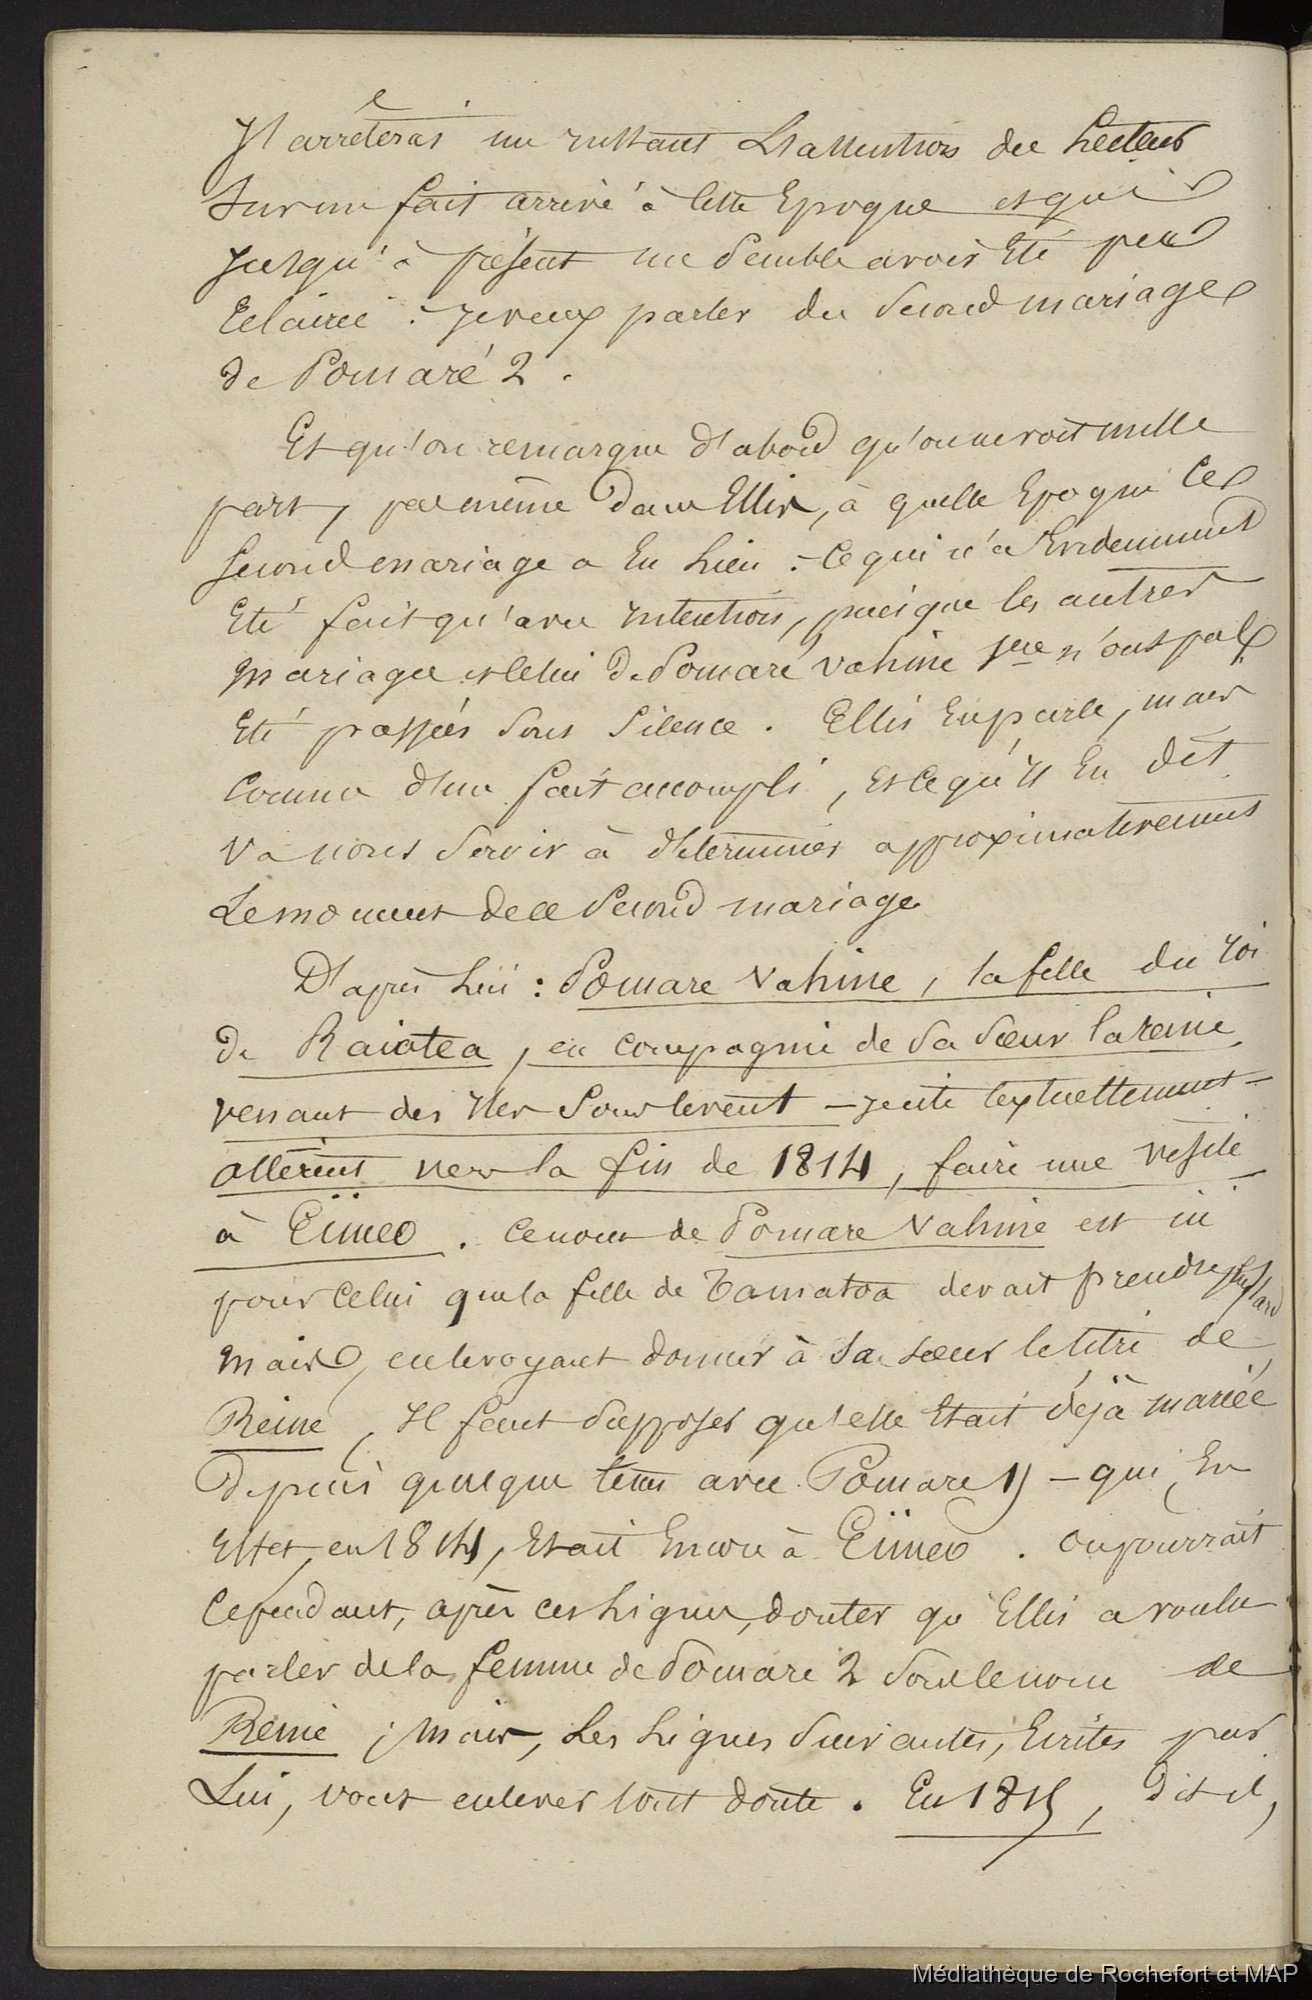 J'arrêterai un instant l'attention du Lecteur
Sur un fait arrivé à cette Epoque et qui
jusqu'à présent me Semble avoir Eté peu
Eclairci : je veux parler du Second mariage
de Pomaré 2.
Et qu'on remarque d'abord qu'on ne voit nulle
part, pas même dans Ellis, à quelle Epoque ce
second mariage a Eu Lieu : Ce qui n'a Evidemment
Eté fait qu'avec intention, puisque les autres
mariages et celui de Pomaré vahine 1ere n'ont pas
Eté passées Sous Silence. Ellis En parle, mais
Comme d'un fait accompli, et ce qu'il En dit
va nous Servir à déterminer approximativement
Le moment de ce Second mariage
D'après Lui : Pomare Vahine, la fille du roi
de Raiatea, en compagnie de Sa Sœur la reine
venant des Iles Sous le vent - je cite textuellement -
allèrent vers la fin de 1814, faire une visite
à Eïmeo. Ce nom de Pomare Vahine est ici
pour Celui que la fille de Tamatoa devait prendre plus tard
mais, en le voyant donner à Sa sœur le titre de
Reine, Il faut Supposer qu'elle Etait déjà mariée
depuis quelque tems avec Pomare 2 - qui, En
Effet, en 1814, Etait Encore à Eïmeo. On pourrait
Cependant, après ces Lignes, douter qu'Ellis a voulu
parler de la femme de Pomare 2 Sous le nom de
Reine ; Mais, Les Lignes Suivantes, Ecrites par
Lui, vont enlever tout doute. En 1815, dit-il,
Médiathèque de Rochefort et MAP